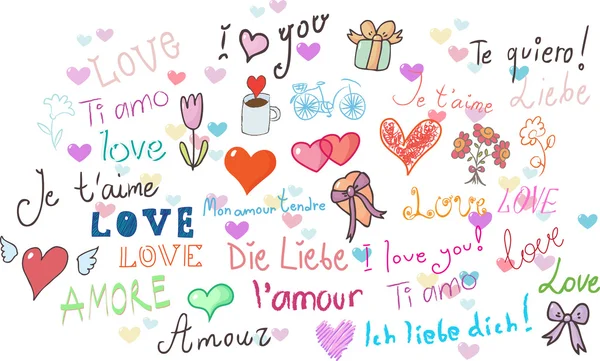 I you
LOVE
Te quiero!
Ti amo
Je t'aime
Liebe
love
Je t'aime
Mon amour tendre
LOVE
LOVE
LOVE
LOVE
Die Liebe
I love you!
love
AMORE
l'amour
Ti amo
Love
Amour
Ich liebe dich!